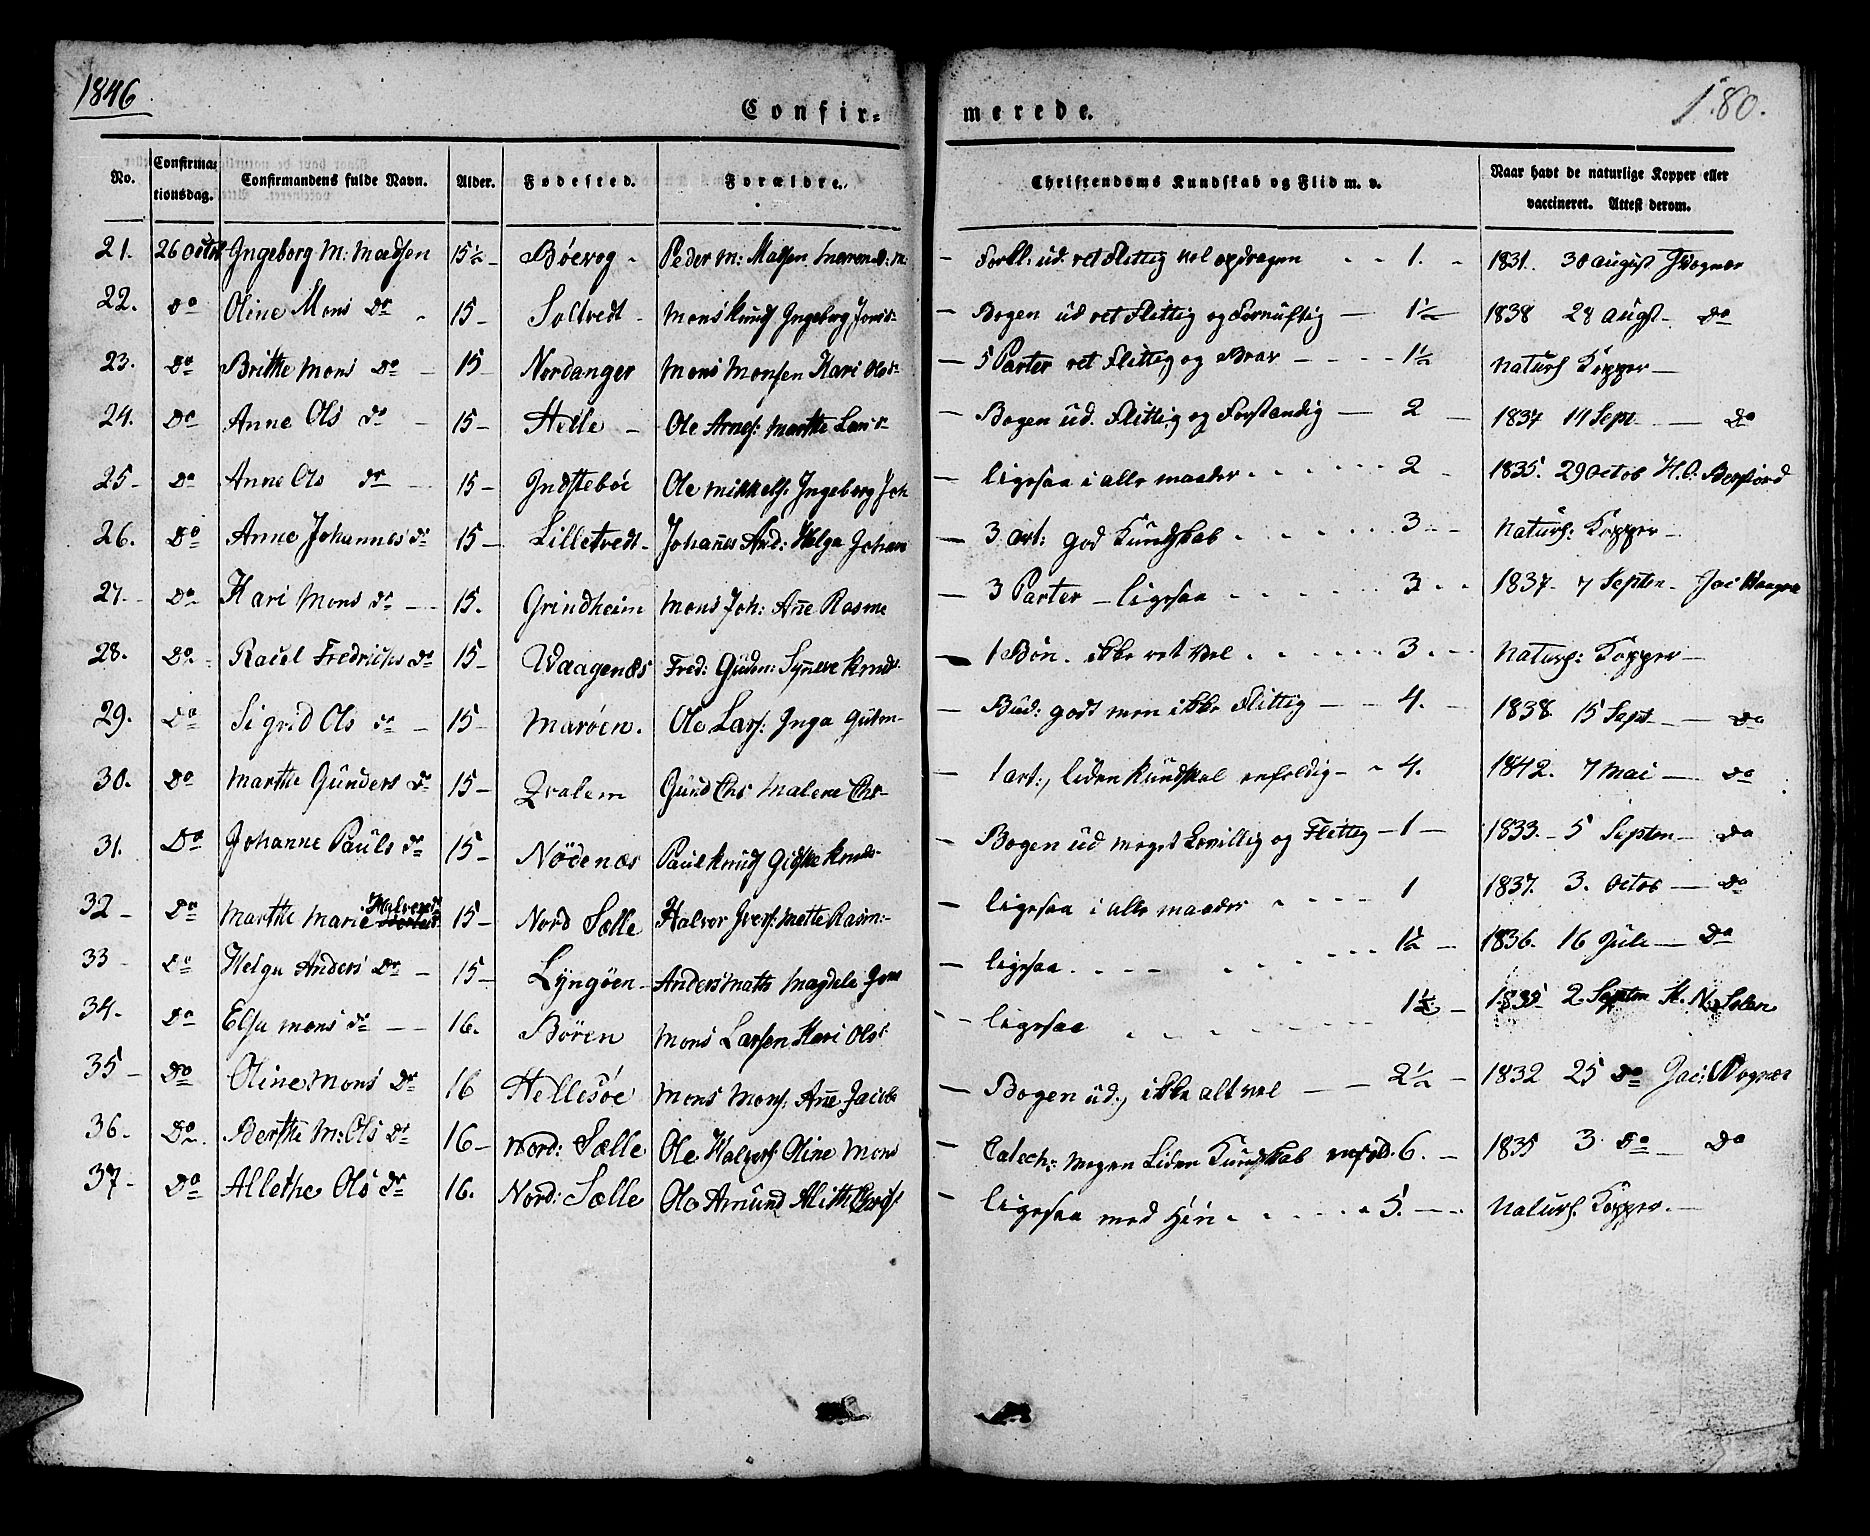 1846
Confir-
merede.
180.
No. Confirma-tionsdag. Confirmandens fulde Navn. Alder. Fødested. Forældre. Christendoms Kundskab og Flid m. v. Naar havt de naturlige Kopper eller vaccineret. Attest derom.
21. 26 Octbr Ingeborg M: Madsen 15½ Bøevog Peder M: Madsen - Forkl: ud. ret Flittig vel opdragen 1. 1831. 30 august
22. Do Oline Mons Dr 15 - Soltvedt - Mons Knuds Ingeborg Jons - Bogen ud ret Flittig og Fornuftig - 1½ 1838 28 Augst - Do
23. Do Brithe Mons Dr - 15 - Nordanger Mons Monsen Kari Ols - 5 Parter ret Flittig og Brav - 1½ Naturl Kopper -
24. Do Anne Ols dr - 15 - Helle - Ole Arnes: Marthe Lars - Bogen ud. Flittig og Forstandig - 2 1837 14 Sept - Do
25 - Do Anne Ols dr 15 - Indstebøe Ole Mikkels: Ingeborg Joh - ligesaa i alle maader 2 - 1835. 29 Octob H. O:
26. Do Anne Johannes dr 15 - Lilletvedt - Johañes And: Helga Johan - 3 art: god Kundskab 3 - Naturl: Kopper -
27 - Do Kari Mons dr - 15. Grindheim Mons Joh: Añe Rasm - 3 Parter - ligesaa 3 1837. 7 Septen - Jac
28. Do. Fredrichs dr 15 - Waagenæs Fred: Gudm: Synneve Knuds - 1 Bøn. ikke ret vel 3 - Naturl: Kopper -
29. Do Sigrid Ols dr - 15 - Marøen. Ole Lars: Inga Gudm - Bud: godt men ikke Flittig - 4. 1838 15 Sept - Do
30. Do Marthe Gunders dr 15 - Qvalem Gund Chr Malene Chr - 1 art:, liden kundskab enfoldig - 4. 1842. 7 Mai - Do
31. Do Johanne Pauls dr 15 - Nödenæs Paul Knuds Gidske Knuds - Bogen ud meget Lovillig og Flittig - 1 - 1833. - 5 Septen - Do
32 - Do Marthe Marie Halvors 15 - Nord Sælle Halvor Ivers: Mette Rasm: - ligesaa i alle maader 1 1837. 3. Octob - Do
33 - Do Helga Anders Dr - 15 - Lyngøen - Anders Mats Magdele - ligesaa 1½ - 1836. 16 Juli - Do
34. Do Elsa Mons dr - 16. Bören Mons Larsen Kari Ols - ligesaa 1½ - 1835 2. Septen
35 - Do Oline Mons Dr 16 Hellesöe Mons Mons. Añe Jacob - Bogen ud., ikke alt vel - 2½ - 1832 25 Do Jac:
36. Do Berthe M: Ols Dr 16 - Nord: Sælle Ole Halvors Oline Mons - Catech: Megen Liden Kundskab enfold. 6. - 1835 3 Do - Do
37 - Do Allethe Ols dr 16. Nord: Sælle Ole Amund - ligesaa med Hin 5. - Naturl. Kopper. -